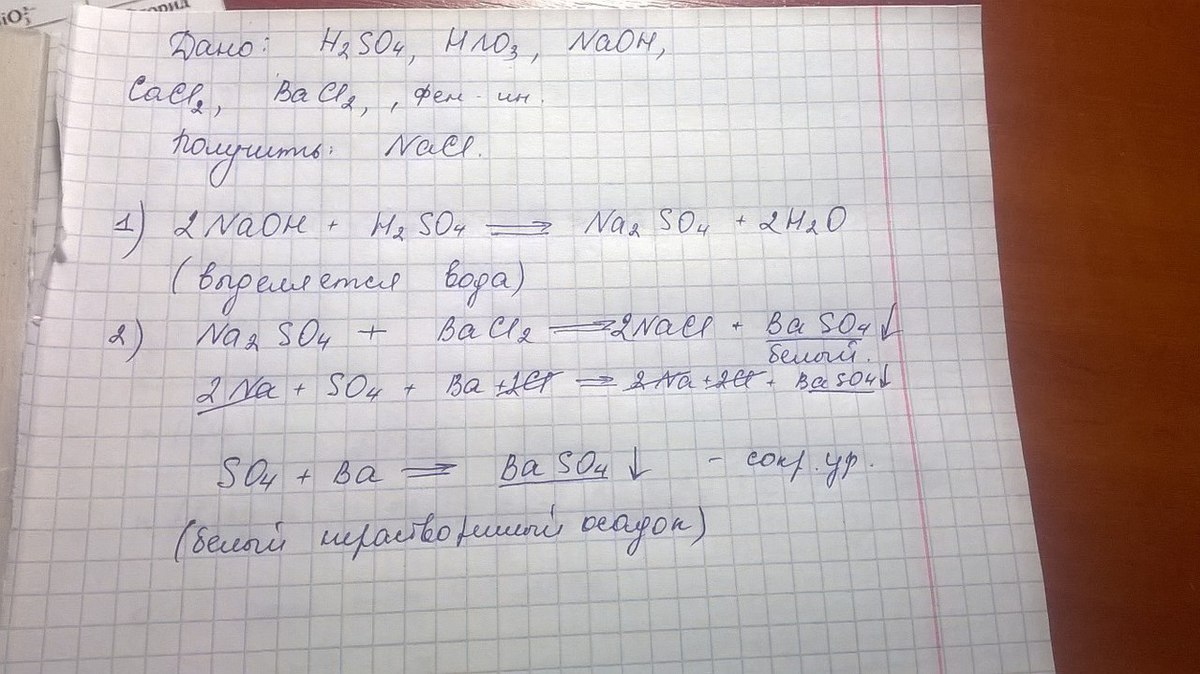 Дано: H₂SO₄, HNO₃, NaOH,
CaCl₂, BaCl₂, , фен-ин.
Получить: NaCl.
1) 2NaOH + H₂SO₄ ⟹ Na₂SO₄ + 2H₂O
(выделяется вода)
2) Na₂SO₄ + BaCl₂ ⟹ 2NaCl + BaSO₄↓
белый.
2Na + SO₄ + Ba + 2Cl ⟹ 2Na + 2Cl + BaSO₄↓
SO₄ + Ba ⟹ BaSO₄↓ - сокр. ур.
(белый нерастворимый осадок)